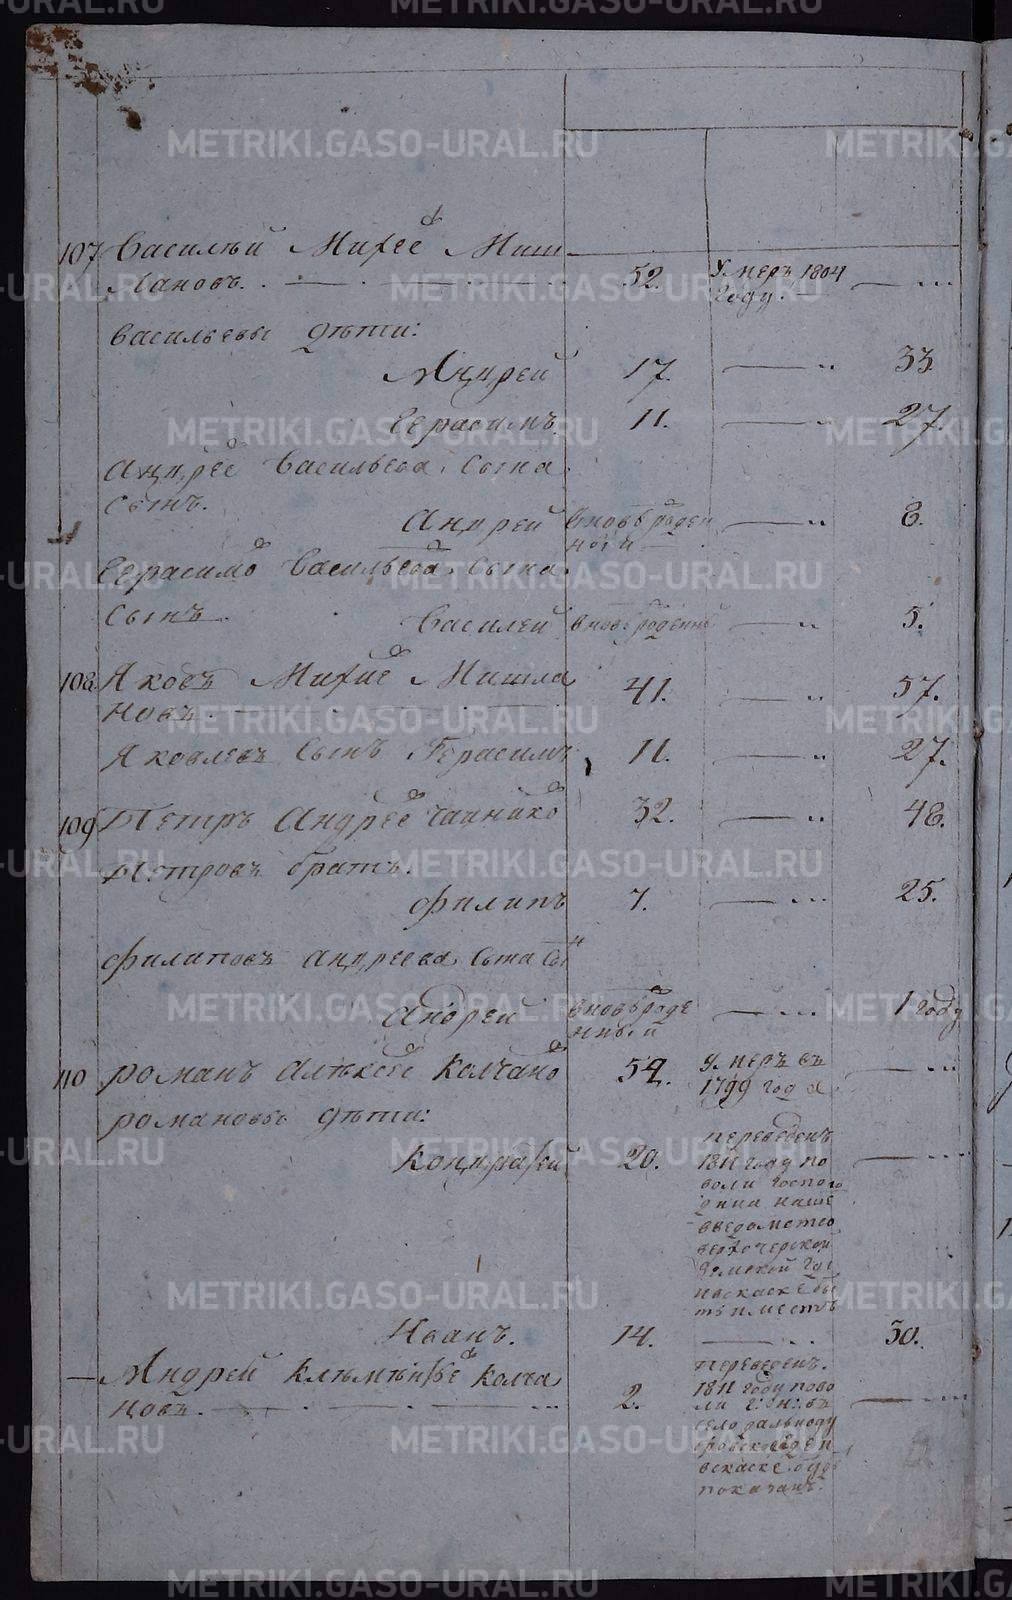 107 Василѣй Михеев Миш
лановъ. 52. Умеръ 1804
году.
васильевы дѣти:
Андрей 17. 33
Герасимъ 11. 27.
Андреев Васильева сына
сынъ.
Андрей вновьрожден
ной 8.
Герасимов Васильева сына
сынъ.
Василей вновьрожденны 5.
108 Яковъ Михиев Мишла
новъ. 41. 57.
Яковлевъ сынъ Герасимъ 11. 27.
109 Петръ Андреев чайников 32. 48.
Петровъ братъ.
Филипъ 7. 25.
Филиповъ андреева сына сын
Андрей вновьрожде
нный 1 году
110 романъ Алѣксеев Колчанов 54. Умеръ въ
1799 года
романовы дѣти:
Кондратей 20. переведенъ
1811 году по
воли господ
дина наше
в ведомство
земской
въ скаске
Иванъ. 14. 30.
Андрей Клѣмѣнтьев Колча
новъ. 2. переведенъ.
1811 году пово
ли г:н: въ
село
где и
вскаске будѣ
показанъ.
METRIKI.GASO-URAL.RU